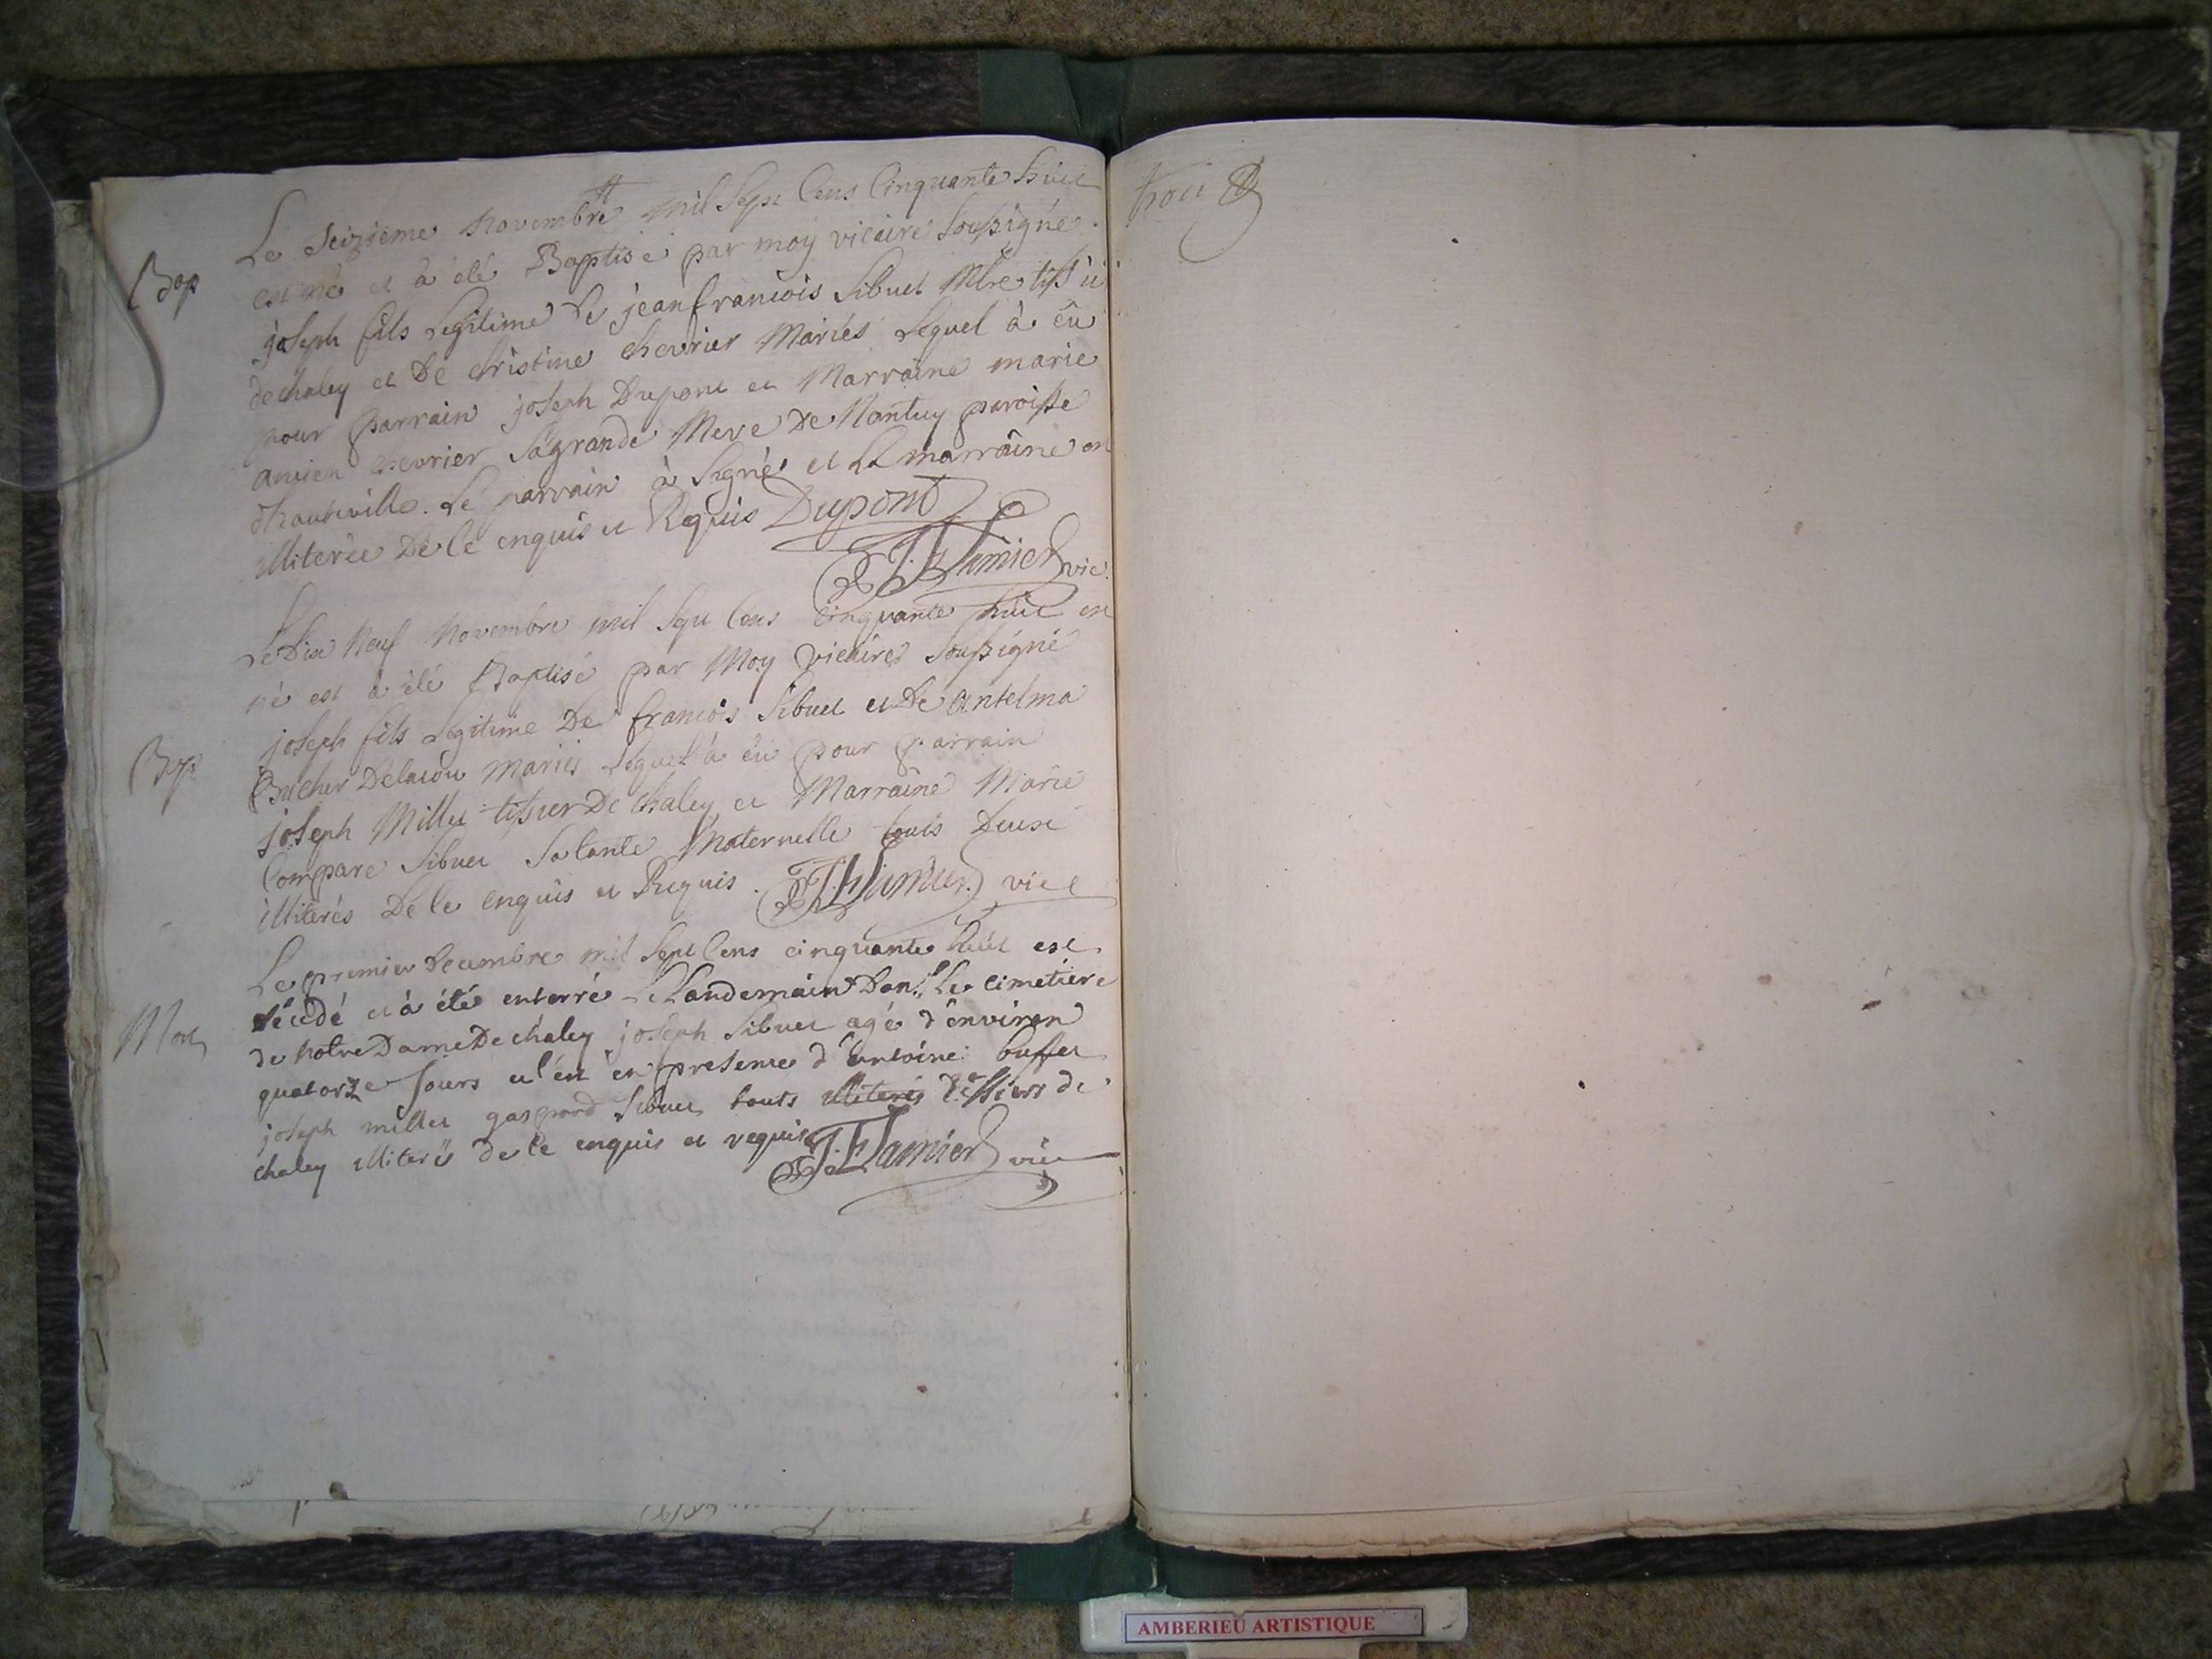 Le seizieme novembre mil sept Cens Cinquante huit
Bap
est né et à été Baptisé par moy vicaire soussigné
joseph fils Legitime de jean francois Sibuet Mtre tiss
de chaley et De christine chevrier Mariés Lequel à eu
pour parrain joseph Dupont et Marraine marie
chevrier Sa grande Mere De Nantuy paroisse
d'hauteville. Le parrain à Signé et La marraine
illiterée De ce enquis et Requis Dupont
vic.
Le Dix Neuf Novembre mil Sept Cens Cinquante huit est
né est à été Baptisé par Moy vicaire Soussigné
joseph fils Legitime De francois Sibuet et De antelma
Bap
mariés Lequel à eu pour parrain
joseph Millet tissier De chaley et Marraine Marie
Compare Sibuet Sa tante Maternelle touts Deux
illiterés De ce enquis et Requis. vice
Le premier Decembre mil Sept Cens cinquante huit est
décedé et à été enterré Le Landemain Dans Le cimetiere
Mort
de Notre Dame De chaley joseph Sibuet agé d'environ
quatorze jours en presence d'Antoine buffet
joseph millet gaspard Sibuet touts illiterés tissiers de
chaley illiterés de ce enquis et requis vic
AMBERIEU ARTISTIQUE